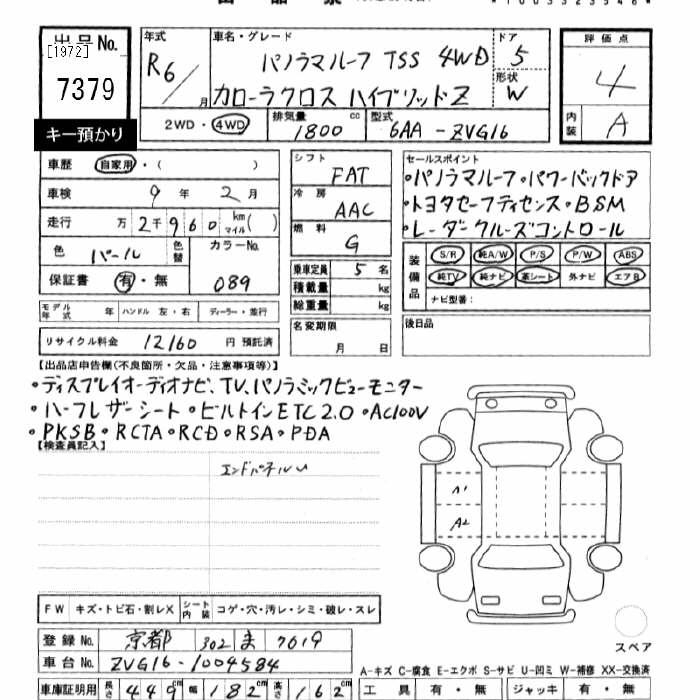 出品No.
[1972]
7379
キー預かり
年式
R6/月
車名・グレード
パノラマルーフ TSS 4WD
カローラクロス ハイブリッドZ
ドア
5
形状
W
2WD・4WD
排気量
1800 cc
型式
6AA-ZVG16
評価点
4
内装
A
車歴 自家用・( )
車検 9年 2月
走行 万 2千960 km マイル( )
色 パール 色替
カラーNo. 089
保証書 有・無
モデル年式 年 ハンドル 左・右 ディーラー・並行
リサイクル料金 12160 円 預託済
シフト
FAT
冷房
AAC
燃料
G
乗車定員 5 名
積載量 kg
総重量 kg
名変期限
月 日
セールスポイント
•パノラマルーフ•パワーバックドア
•トヨタセーフティセンス•BSM
•レーダークルーズコントロール
装備品
S/R 純A/W P/S P/W ABS
純TV 純ナビ 革シート 外ナビ エアB
ナビ型番:
後日品
【出品店申告欄(不良箇所・欠品・注意事項等)】
•ディスプレイオーディオナビ、TV、パノラミックビューモニター
•ハーフレザーシート•ビルトインETC2.0•AC100V
•PKSB•RCTA•RCD•RSA•PDA
【検査員記入】
エンドパネルU
A1
A2
FW キズ・トビ石・割レX シート内装 コゲ・穴・汚レ・シミ・破レ・スレ
登録No. 京都 302 ま 7619
車台No. ZVG16-1004584
車庫証明用 長さ 449cm 幅 182cm 高さ 162cm
スペア
A-キズ C-腐食 E-エクボ S-サビ U-凹ミ W-補修 XX-交換済
工具 有・無 ジャッキ 有・無